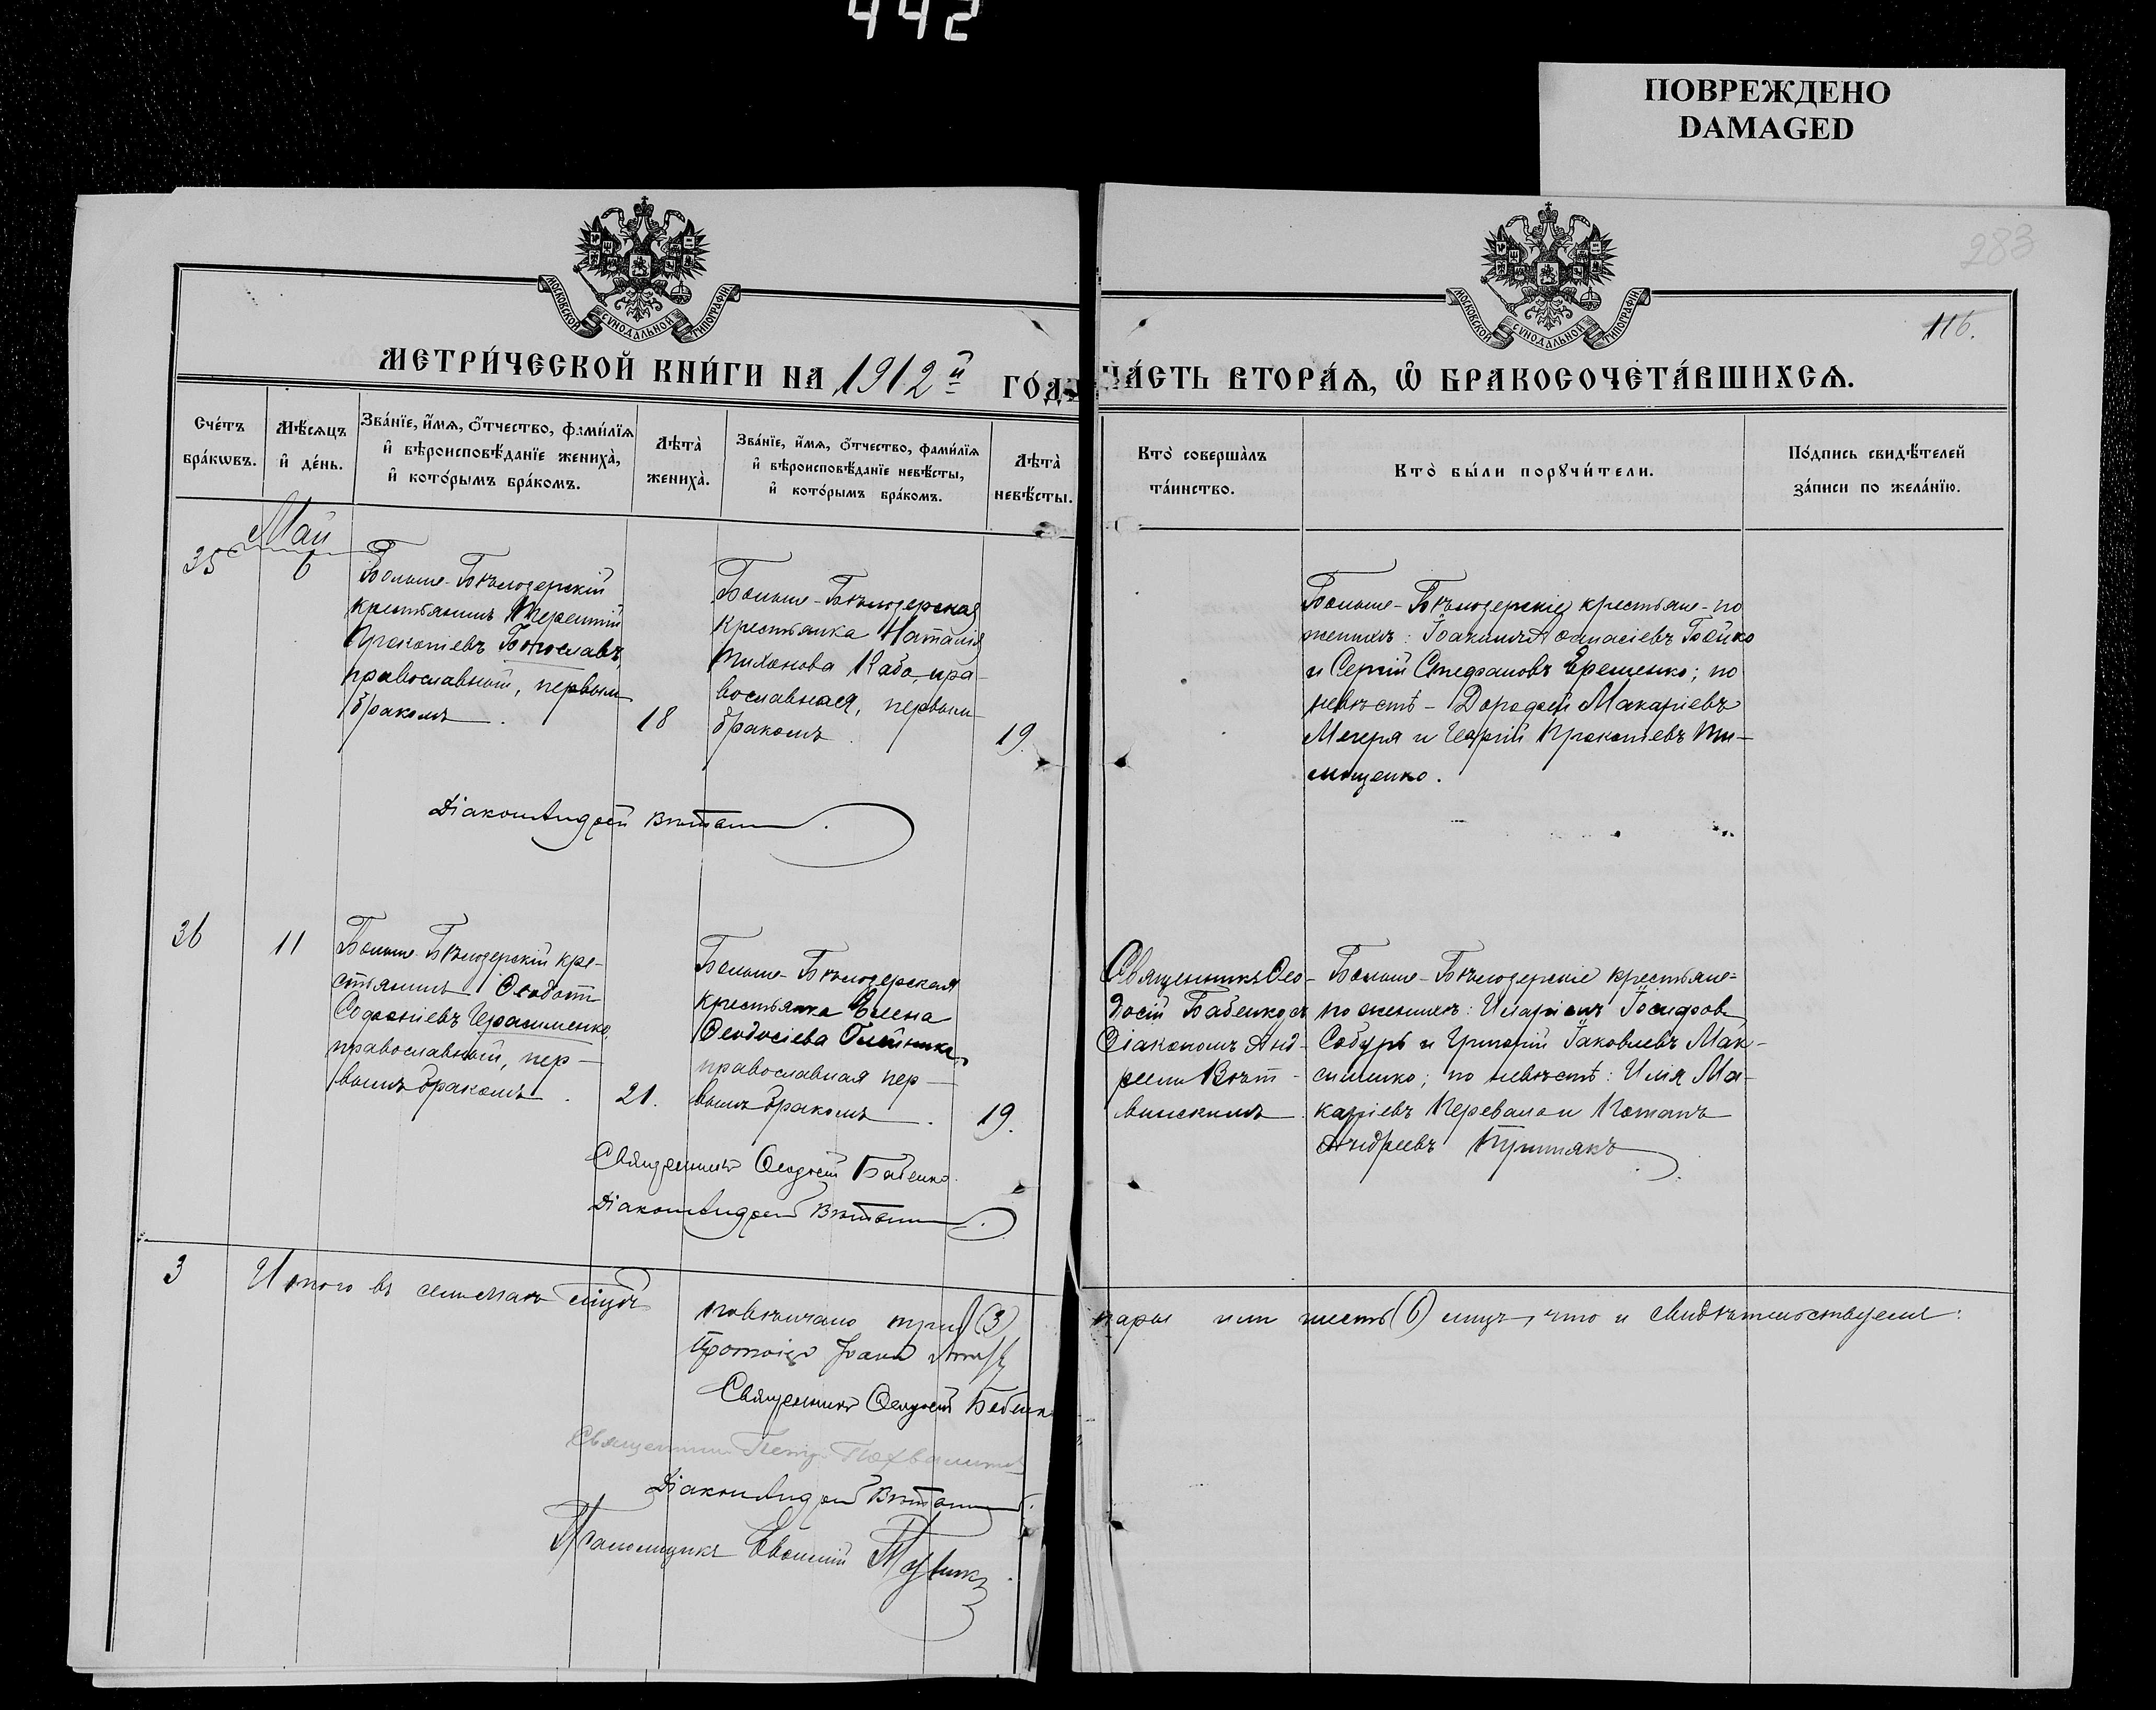 442
ПОВРЕЖДЕНО
DAMAGED
283
116.
МОСКОВСКОЙ СУНОДАЛЬНОЙ ТИПОГРАФІИ
МОСКОВСКОЙ СУНОДАЛЬНОЙ ТИПОГРАФІИ
МЕТРИ́ЧЕСКОЙ КНИ́ГИ НА 1912й ГО́ДЪ
ЧА́СТЬ ВТОРА́Ѧ, Ѽ БРАКОСОЧЕТА́ВШИХСѦ.
Сче́тъ бра́кѡвъ.
Мѣ́сѧцъ и҆ де́нь.
Зва́нїе, и҆́мѧ, ѻ҆́тчество, фами́лїѧ
и҆ вѣроисповѣ́данїе жениха̀,
и҆ кото́рымъ бра́комъ.
Лѣта̀ жениха̀.
Зва́нїе, и҆́мѧ, ѻ҆́тчество, фами́лїѧ
и҆ вѣроисповѣ́данїе невѣ́сты,
и҆ кото́рымъ бра́комъ.
Лѣта̀ невѣ́сты.
Кто̀ соверша́лъ та́инство.
Кто̀ бы́ли порꙋчи́тели.
По́дпись свидѣ́телей за́писи по жела́нїю.
Май
35
6
Больше-Бѣлозерскій
крестьянинъ Терентій
Прокопіевъ Богославъ,
православный, первымъ
бракомъ.
18
Больше-Бѣлозерская
крестьянка Наталія
Тихонова Каба, пра-
вославная, первым
бракомъ.
19.
Больше-Бѣлозерскіе крестьяне-по
женихѣ: Іоакимъ Аѳанасіевъ Бойко
и Сергій Стефановъ Ерещенко; по
невѣстѣ - Дорофей Макаріевъ
Мегеря и Георгій Прокопіевъ Ти-
мощенко.
Діаконъ Андрей
36
11
Больше-Бѣлозерскій кре-
стьянинъ Ѳеодотъ
Софоніевъ Герасименко,
православный, пер-
вымъ бракомъ.
21.
Больше-Бѣлозерская
крестьянка Елена
Ѳеодосіева
православная пер-
вымъ бракомъ.
19.
Священникъ Ѳео-
досій Бабенко съ
Діакономъ Анд-
реемъ Витт-
Больше-Бѣлозерскіе крестьяне=
по женихѣ: Иларіонъ Іосифовъ
Собуръ и Григорій Іаковлевъ Мак-
сименко; по невѣстѣ: Илія Ма-
каріевъ Перевала и Потапъ
Андреевъ
Священникъ Ѳеодосій Бабенко.
Діаконъ Андрей
3
Итого въ семъ Маѣ мѣсяцѣ
повѣнчано три (3)
пары или шесть (6) лицъ, что и свидѣтельствуемъ:
Протоіер Іоанн
Священникъ Ѳеодосій Бабенко
Священникъ Петръ
Діаконъ Андрей
Псаломщикъ Евѳимій